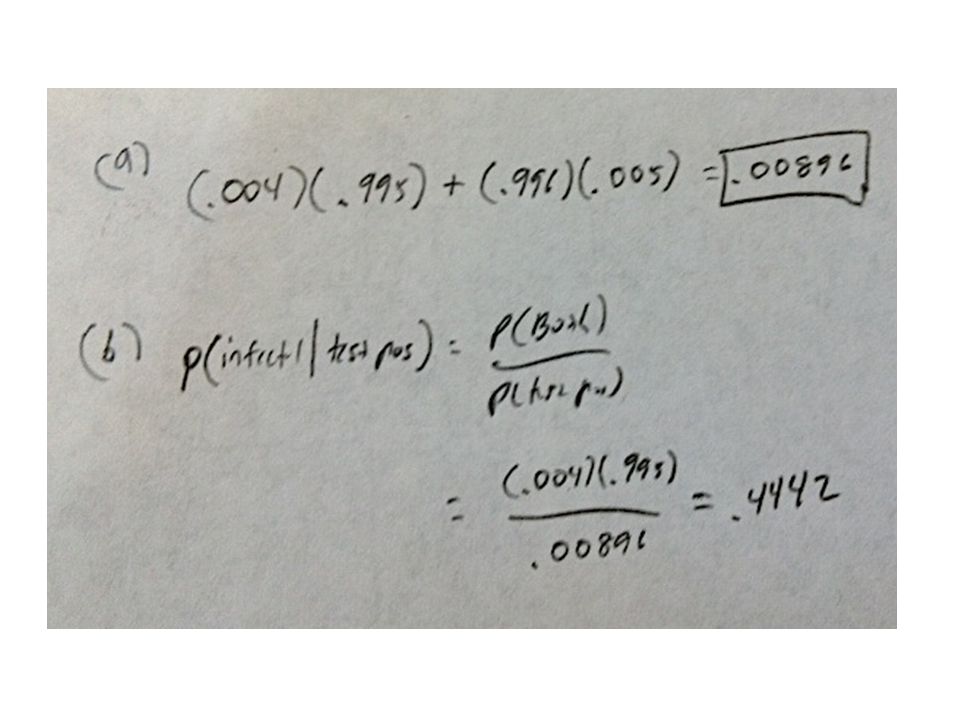 (a) (.004)(.995) + (.996)(.005) = .00896
(b) P(infect | test pos) = P(Both)
P(test pos)
= (.004)(.995) = .4442
.00896